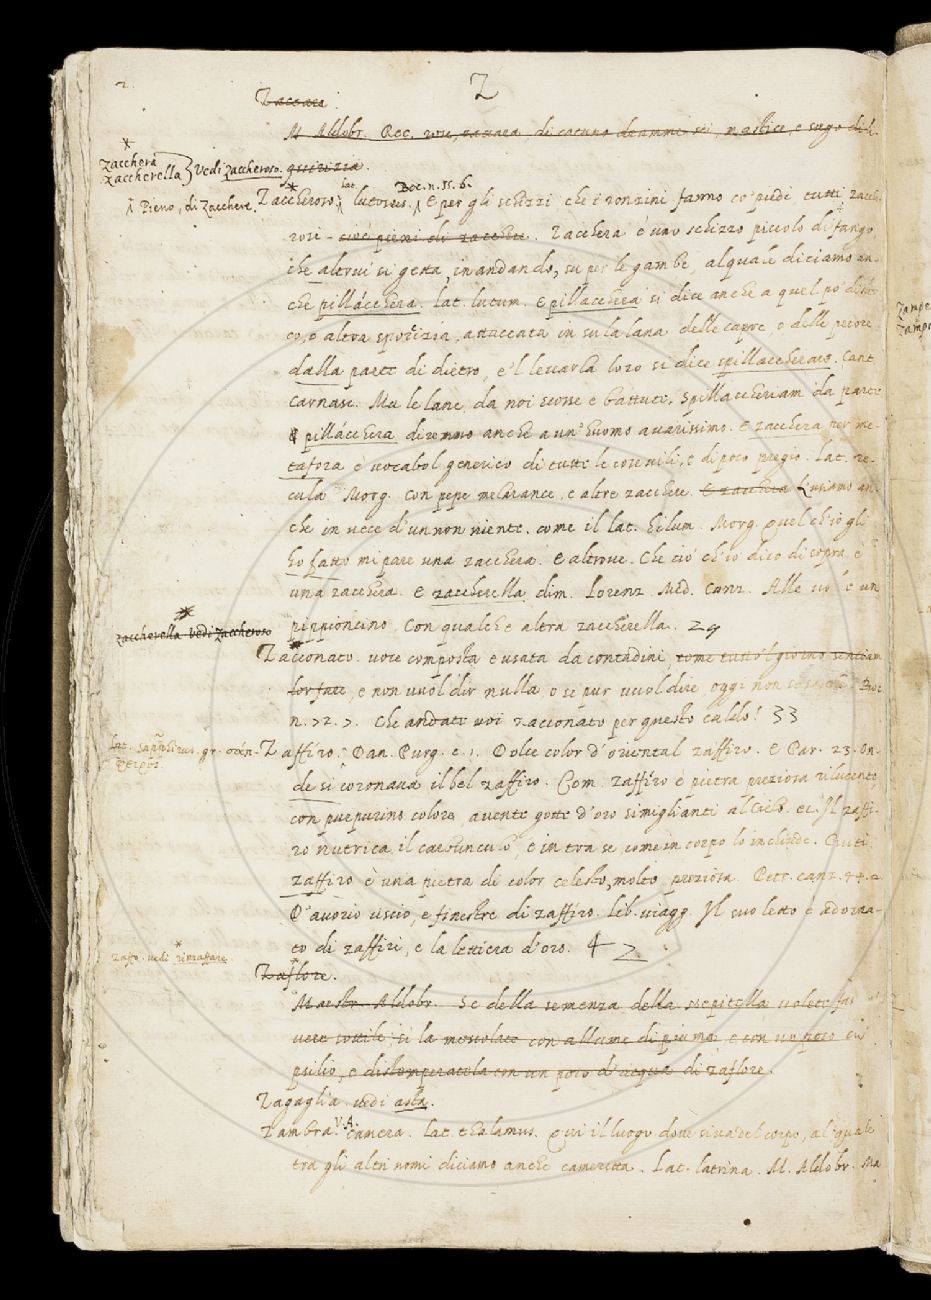 2.
Z
Zaccara
M. Aldobr. Rec. rose, zaccara, di catuno dramme sei, mastice, e sugo di li-
zacchera
zaccherella } Vedi zaccheroso. quirizia.
Λ Pieno, di zacchere. Zaccheroso. Λ lat. lutosus. Λ Boc. n. 55. 6. E per gli schizzi che i ronzini fanno co' piedi, tutti zacche-
rosi - cioè pieni di zacchere. Zacchera è uno schizzo piccolo di fango,
che altrui si getta, in andando, su per le gambe, al quale diciamo an-
che pillácchera. Lat. lutum. E pillacchera si dice anche a quel po' di
co, o altra sporcizia, attaccata in su la lana delle capre, o delle pecore
dalla parte di dietro, e 'l levarla loro si dice spillaccherare. Cant.
Carnasc. Ma le lane, da noi scosse e battute, Spillaccheriam da parte
E pillácchera diremmo anche a un' huomo avarissimo. E zacchera per me-
tafora è vocabol generico di tutte le cose vili, e di poco pregio. Lat. re-
cula Morg. Con pepe melarance, e altre zacchere. E zacchera Lusiamo an-
che in vece d'un non niente. come il lat. hilum. Morg. Quel ch'io gli
ho fatto mi pare una zacchera. E altrove. Che ciò ch'io dico di sopra è
una zacchera. E zaccherella dim. Lorenz. Med. Canz. Alle vo' è un
zaccherella vedi zaccheroso pippioncino. Con qualche altra zaccherella. 29
Zacconato. voce composta e usata da contadini, come tutto 'l giorno sentiam
lor fare, e non vuol dir nulla, o se pur vuol dire, oggi non si Boc.
n. 72. 7. Che andate voi zacconato per questo caldo! 33
Lat. sapphirus. gr. Zaffiro. Dan. Purg. c. 1. Dolce color d'oriental zaffiro. E Par. 23. On-
de si coronava il bel zaffiro. Com. Zaffiro è pietra preziosa rilucente,
con purpurino colore, avente gotte d'oro simiglianti al Cielo. ec. Il zaffi-
ro nutrica il carbunculo, e intra se, come in corpo lo inchiude. Buti.
zaffiro è una pietra di color celesto, molto preziosa. Petr. canz. 44. 2
D'avorio uscio, e finestre di zaffiro. Lib. viagg. Il suo letto è adorna-
to di zaffiri, e la lettiera d'oro. 42
zaffo. vedi rinzaffare
Zaflore.
Maestr. Aldobr. Se della semenza della siepitella volete far
vere sottile, si la mescolate con allume di piuma, e con un poco di
psilio, e distemperatela con un poco d'acqua di zaflore.
Zagaglia vedi asta.
Zambra V.A. camera. Lat. thalamus. Qui il luogo dove si va del corpo, al quale
tra gli altri nomi diciamo anche cameretta. Lat. latrina. M. Aldobr. Ma